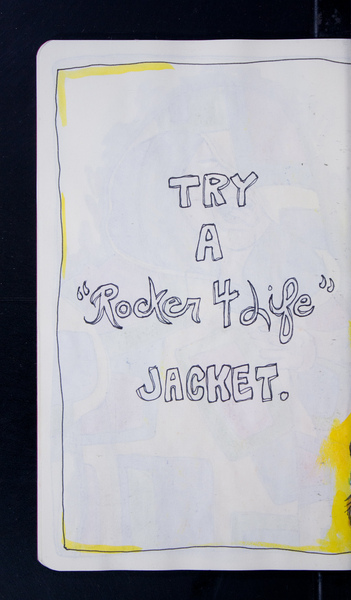 TRY
A
"Rocker 4 Life"
JACKET.